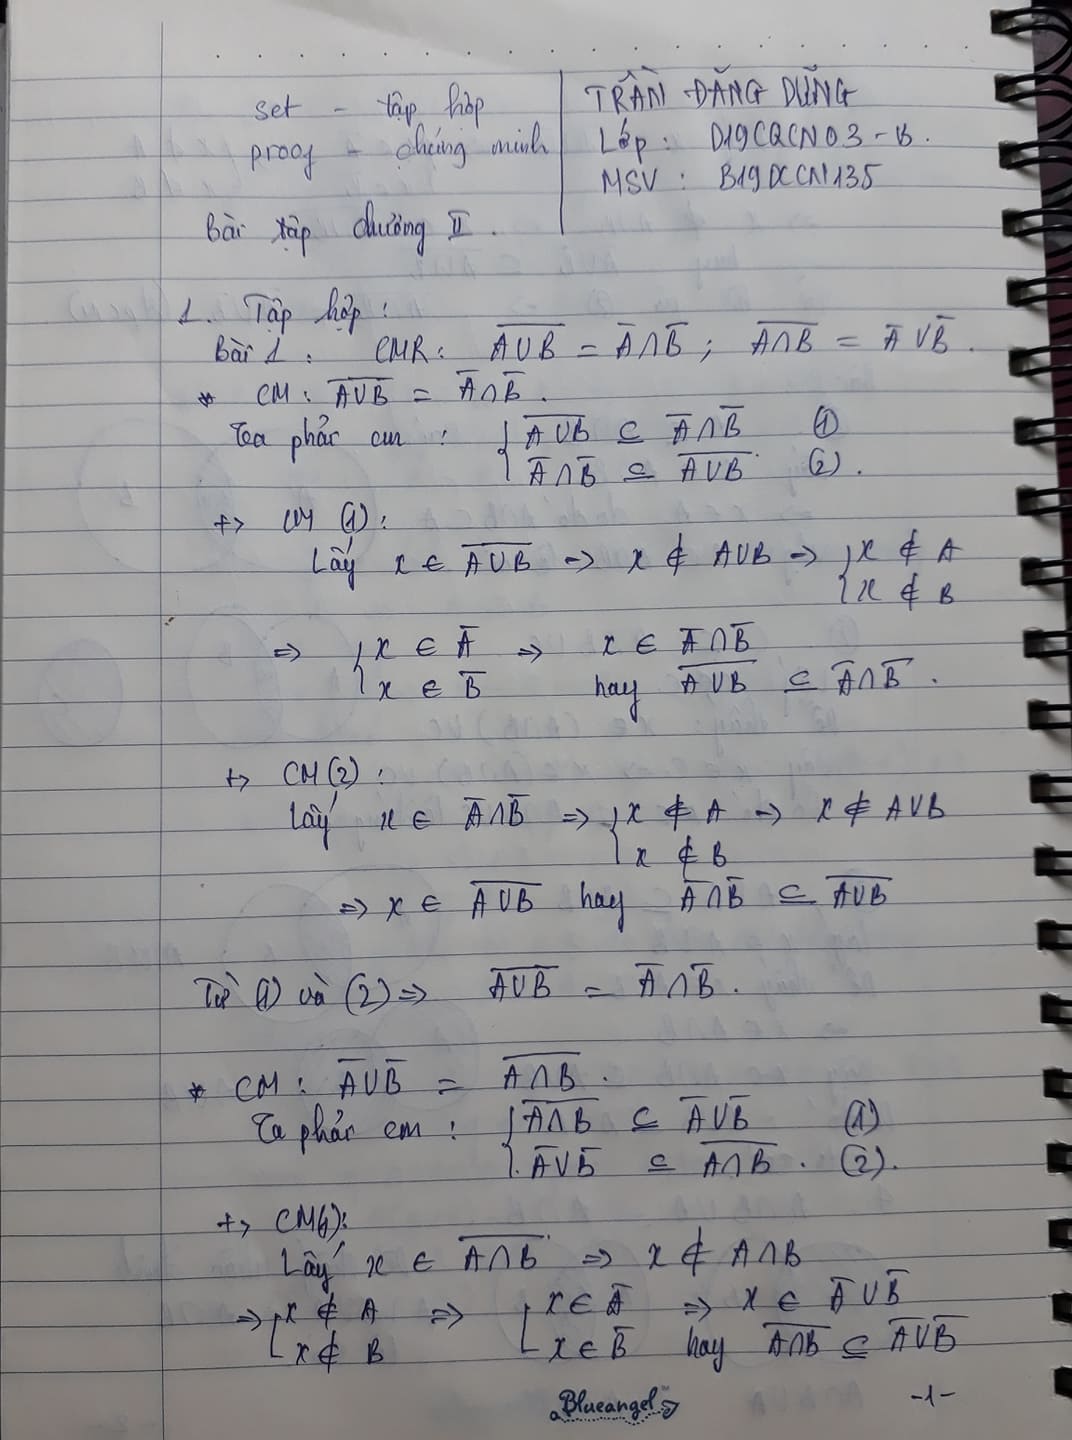 set - tập hợp
proof - chứng minh
TRẦN ĐĂNG DŨNG
Lớp : D19CQCN03-B.
MSV : B19DCCN135
Bài tập chương II.
1. Tập hợp :
Bài 1 : CMR : \overline{A∪B} = \overline{A}∩\overline{B} ; \overline{A∩B} = \overline{A}∪\overline{B}.
* CM : \overline{A∪B} = \overline{A}∩\overline{B}.
Ta phải cm : { \overline{A∪B} ⊆ \overline{A}∩\overline{B} (1)
\overline{A}∩\overline{B} ⊆ \overline{A∪B} (2).
+> CM (1) :
Lấy x ∈ \overline{A∪B} => x ∉ A∪B => { x ∉ A
x ∉ B
=> { x ∈ \overline{A} => x ∈ \overline{A}∩\overline{B}
x ∈ \overline{B} hay \overline{A∪B} ⊆ \overline{A}∩\overline{B}.
+> CM (2) :
Lấy x ∈ \overline{A}∩\overline{B} => { x ∉ A => x ∉ A∪B
x ∉ B
=> x ∈ \overline{A∪B} hay \overline{A}∩\overline{B} ⊆ \overline{A∪B}
Từ (1) và (2) => \overline{A∪B} = \overline{A}∩\overline{B}.
* CM : \overline{A}∪\overline{B} = \overline{A∩B}.
Ta phải cm : { \overline{A∩B} ⊆ \overline{A}∪\overline{B} (1)
\overline{A}∪\overline{B} ⊆ \overline{A∩B}. (2).
+> CM(1):
Lấy x ∈ \overline{A∩B} => x ∉ A∩B
=> [ x ∉ A => [ x ∈ \overline{A} => x ∈ \overline{A}∪\overline{B}
x ∉ B x ∈ \overline{B} hay \overline{A∩B} ⊆ \overline{A}∪\overline{B}
Blueangel
-1-